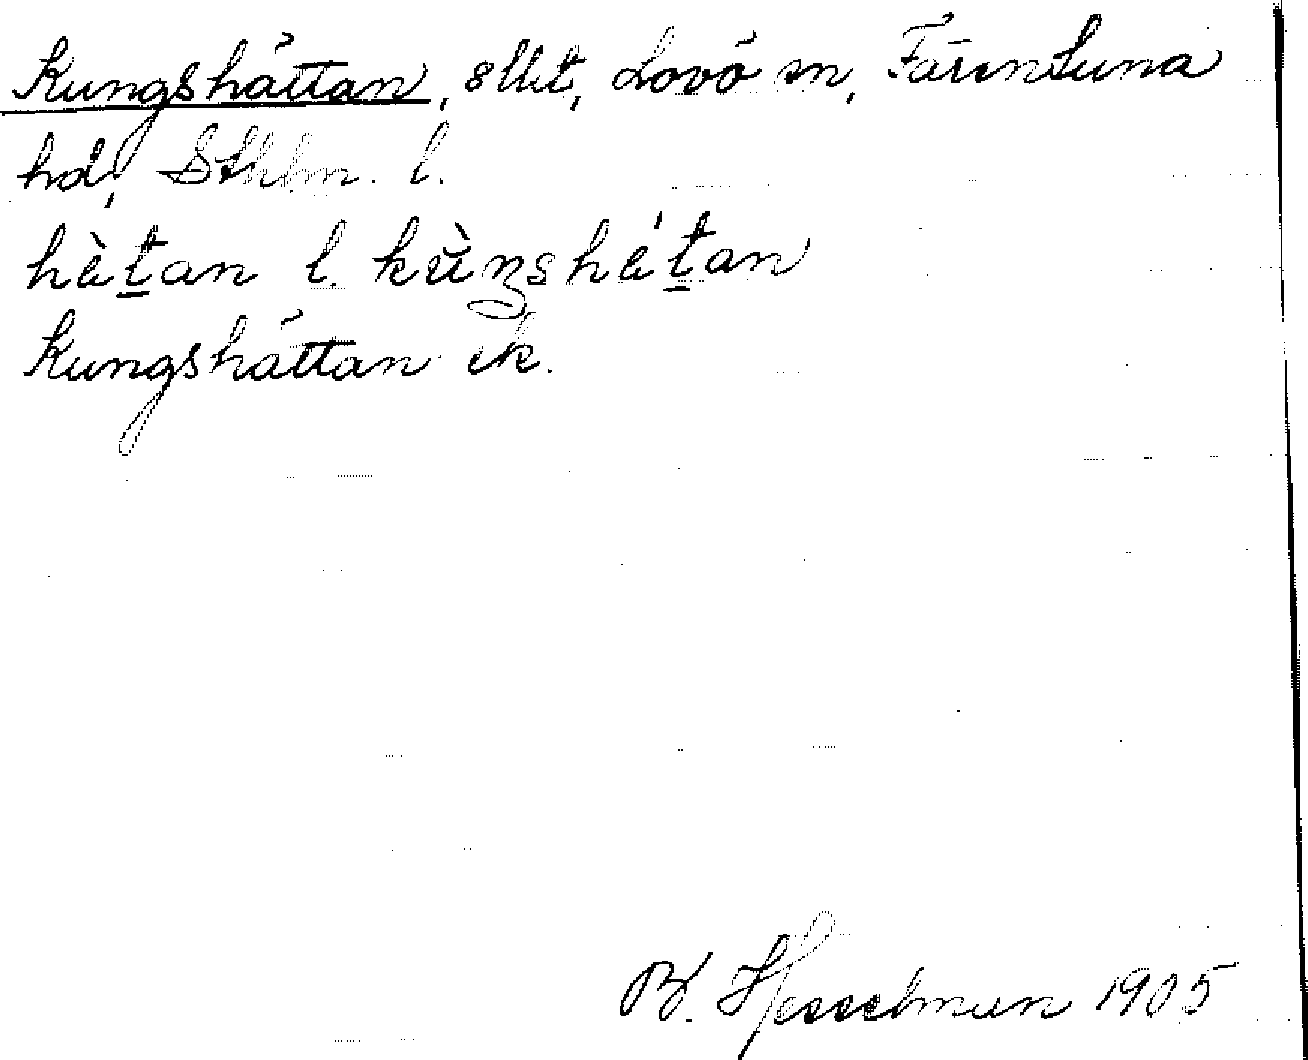 Kungshåttan, slht, Lovö sn, Färentuna
hd, Sthlm. l.
hàt̲an l. kùŋshát̲an
Kungshåttan ek.
B. Hesselman 1905